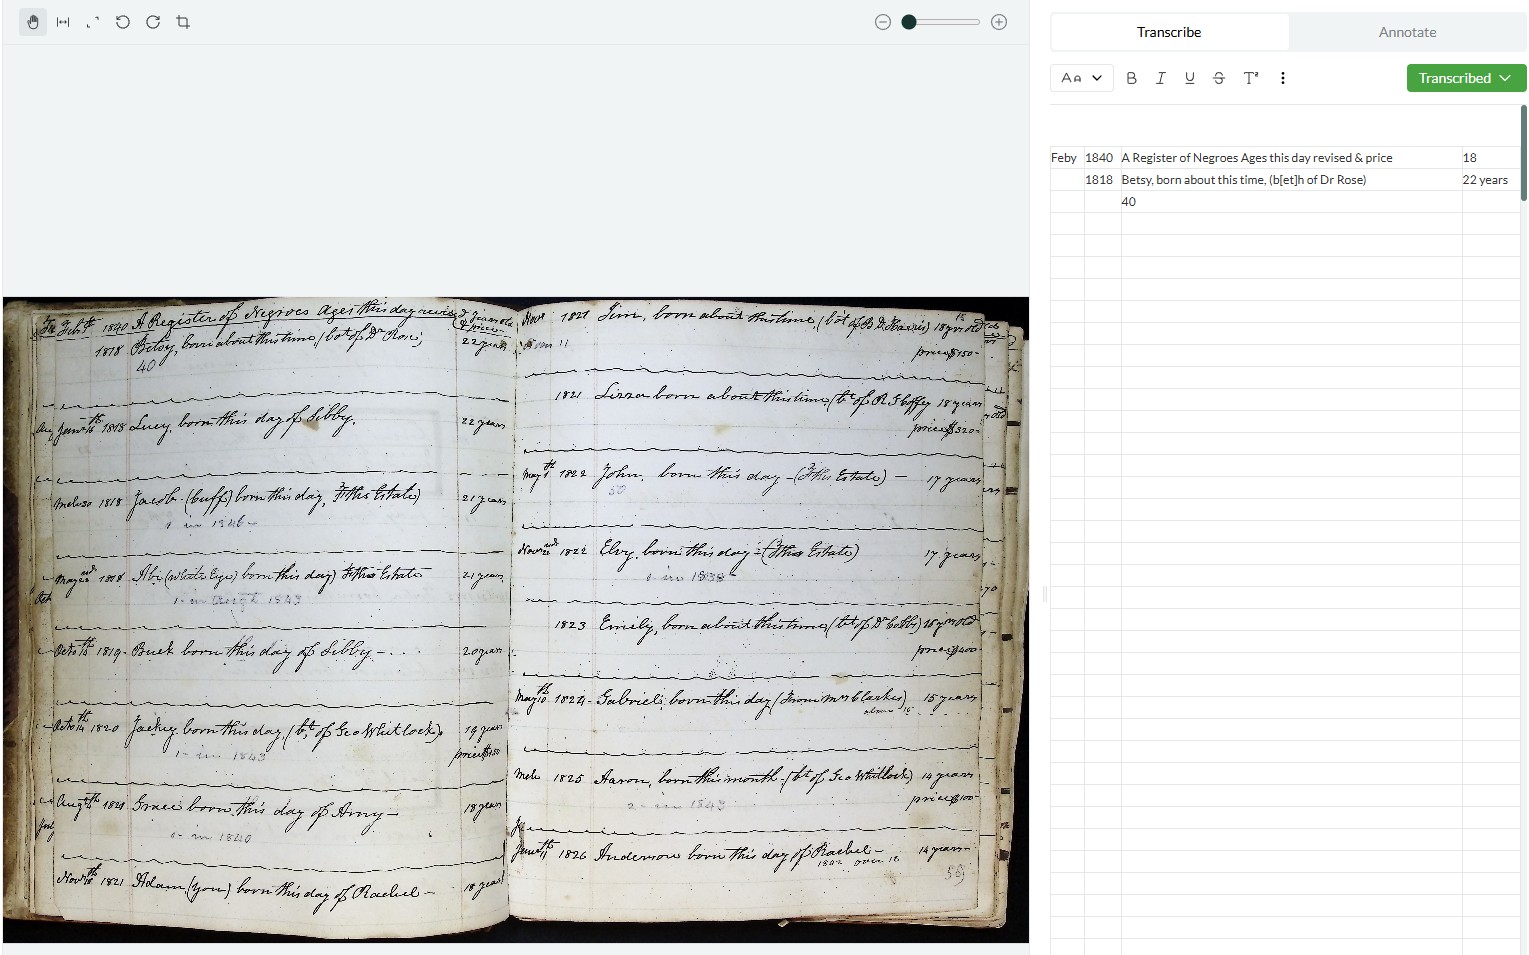 Transcribe
Annotate
Aa
B I U S T
Transcribed
Feby 1840 A Register of Negroes Ages this day revised & price 18
1818 Betsy, born about this time, (b[et]h of Dr Rose) 22 years
40
Feb 1840 A Register of Negroes Ages this day revised
& price
1818 Betsy, born about this time, (bot of Dr Rose) 22 years
40
1818 Lucy, born this day of Sibby. 22 years
1818 Jacob (buff) born this day, Estate) 21 years
1 in 1846
1818 Abi (white Eye) born this day) Estate 21 years
1 in Augt 1843
Octo 1819 Buck born this day of Sibby 20 years
Octo 14th 1820 Jackey born this day, (bt of Geo Whitlock) 19 years
price $150
Augt 1821 Grace born this day of Amy 18 years
1 in 1840
Novr 1821 Adam, (you) born this day of Rachel 18 years
Novr 1821 Jim, born about this time, (bot of B. D. Harris) 18 yrs old
price $150
1821 born about this time, (bt of 18 years
price $320
May 1822 John, born this day (Estate) 17 years
50
Novr 1822 Elvy, born this day Estate) 17 years
1 in 1838
1823 Emily, born about this time, (bt of Dr Cobbs) 16 yrs old
price $400
May 10th 1824 Gabriel, born this day (From Mrs Clarkes) 15 years
1825 Aaron, born this month (bt of Geo Whitlock) 14 years
price $100
2 in 1843
June 11th 1826 Anderson born this day of Rachel 14 years
1842 over 16